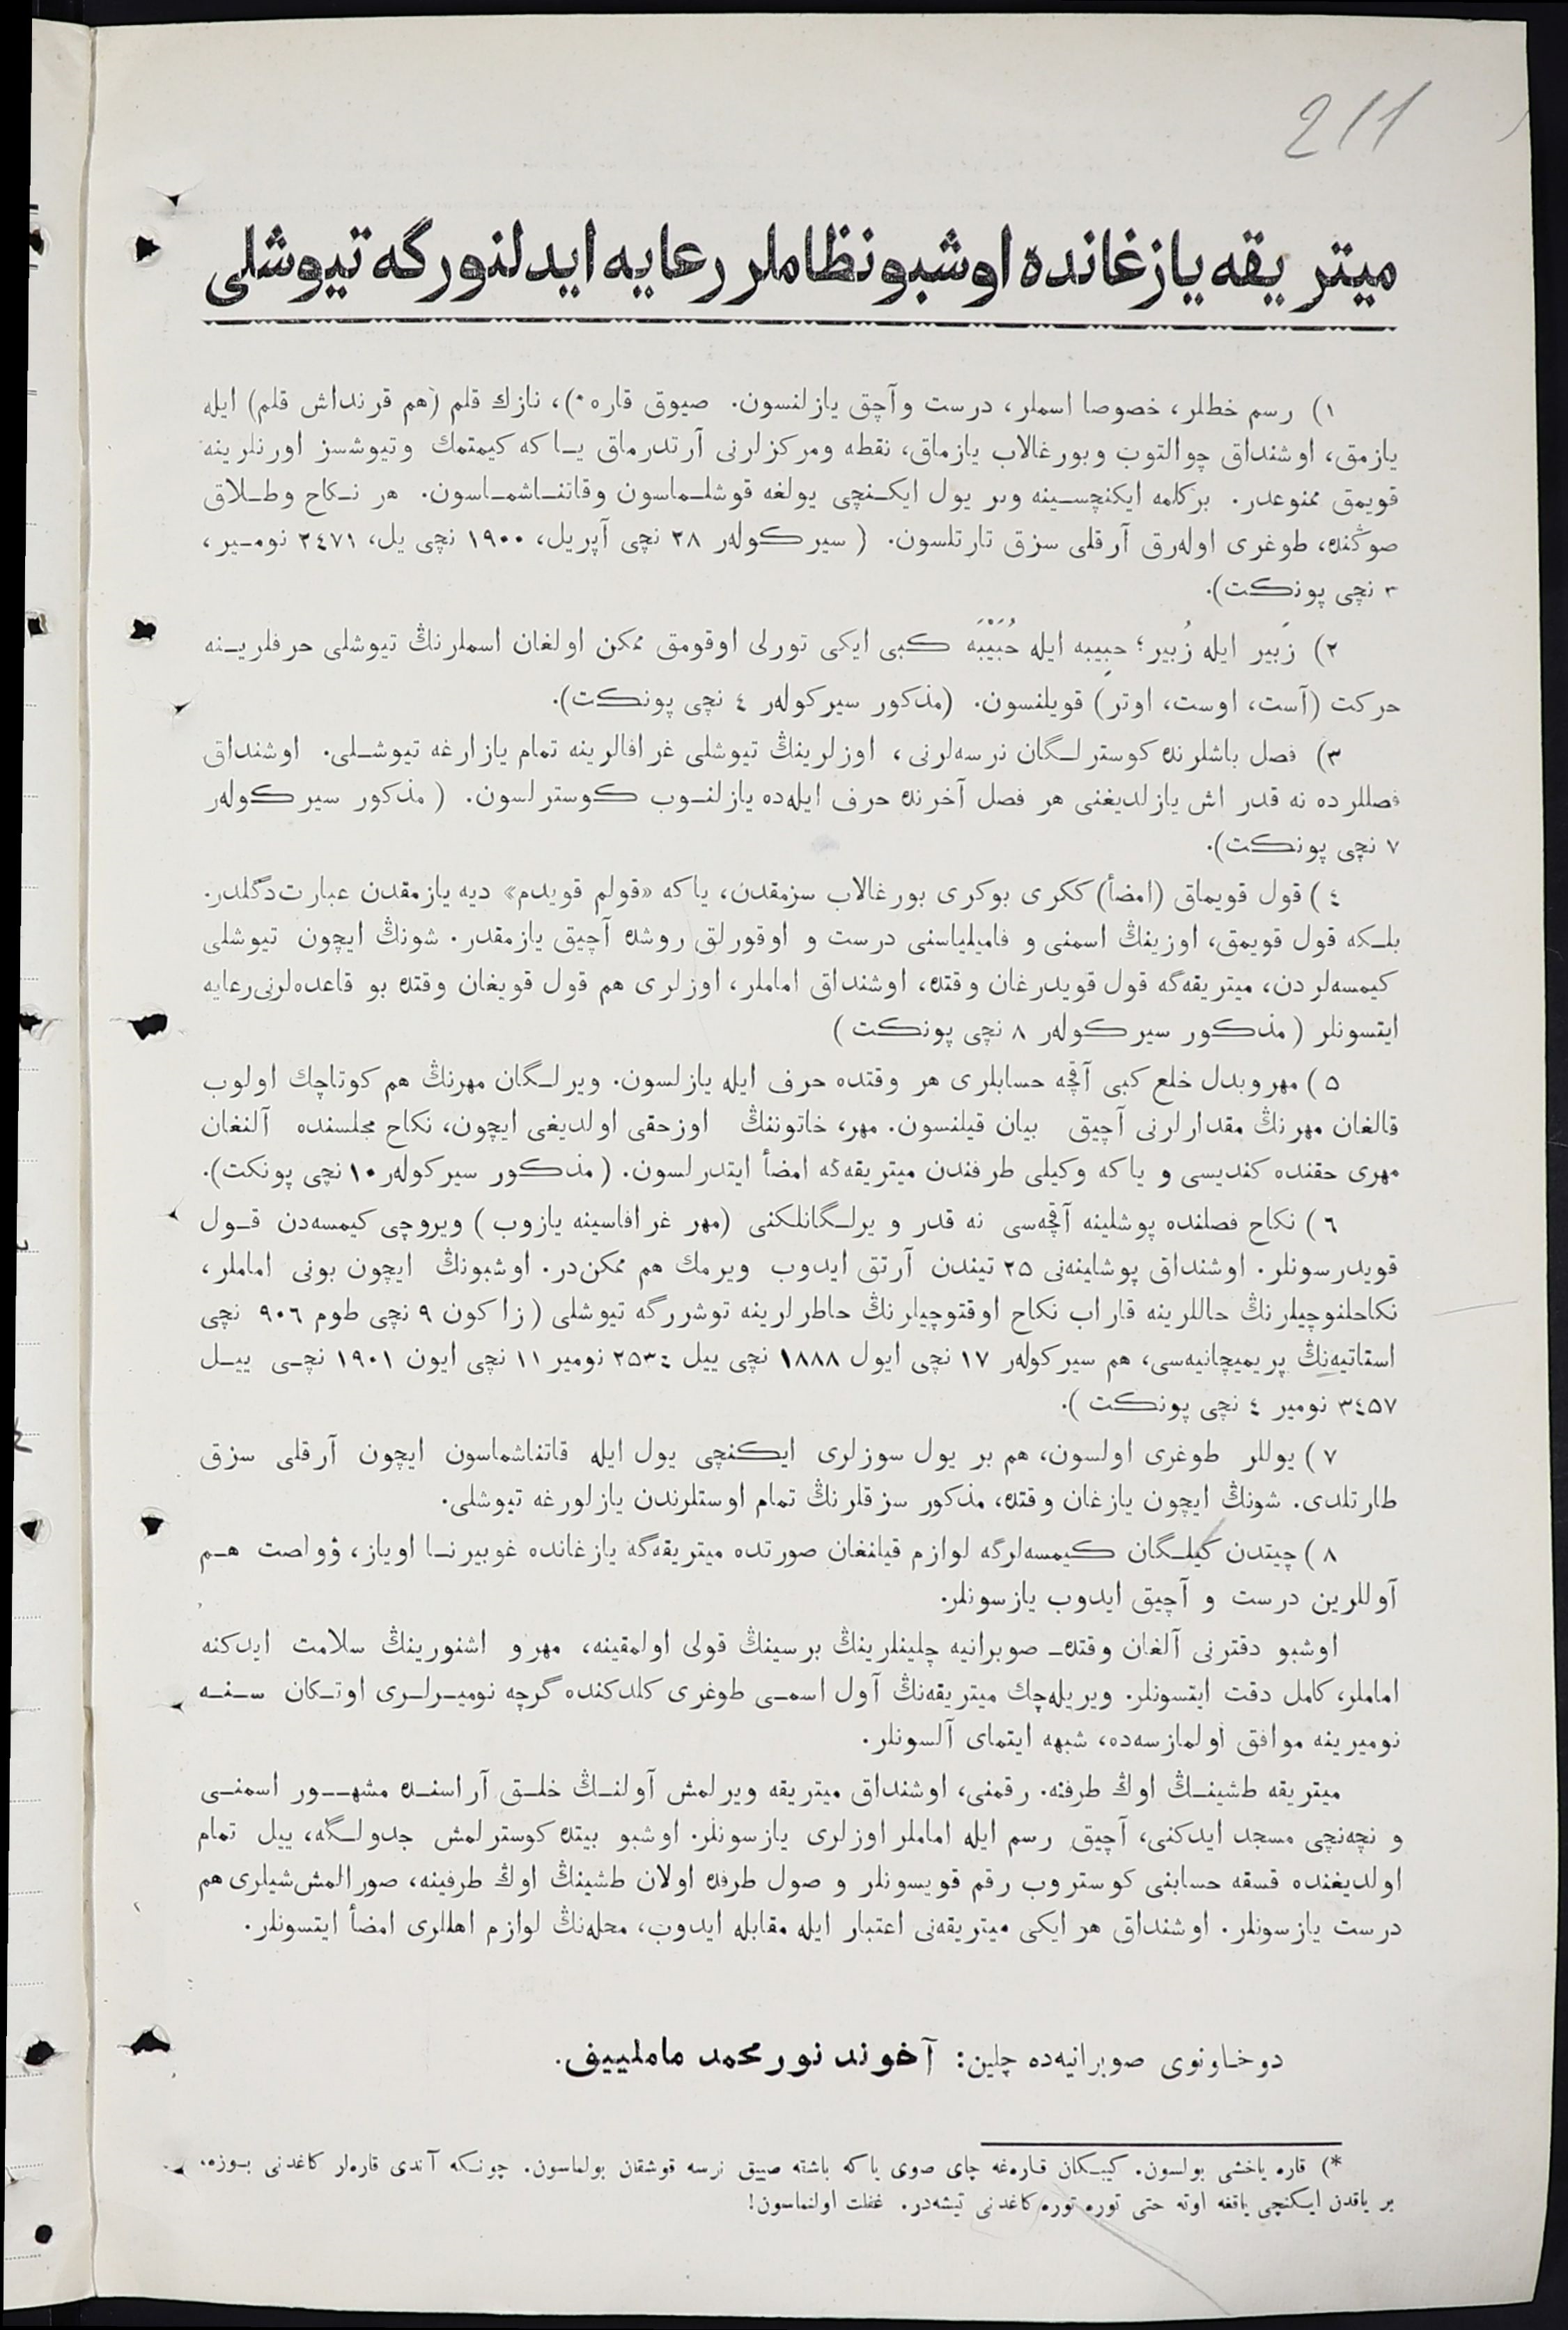 211
ميتريقه يازغانده اوشبو نظاملر رعايه ايدلنورگه تيوشلى
١) رسم خطلر، خصوصا اسملر، درست وآچق يازلنسون. صيوق قاره*)، نازك قلم (هم قرنداش قلم) ايله
يازمق، اوشنداق چوالتوب وبورغالاب يازماق، نقطه ومركزلرنى آرتدرماق ياكه كيمتمك وتيوشسز اورنلرينه
قويمق ممنوعدر. بركلمه ايكنچسينه وبر يول ايكنچى يولغه قوشلماسون وقاتناشماسون. هر نكاح وطلاق
صوڭنده، طوغرى اولەرق آرقلى سزق تارتلسون. (سيركولەر ٢٨ نچى آپريل، ١٩٠٠ نچى يل، ٢٤٧١ نومير،
٣ نچى پونكت).
٢) زَبير ايله زُبير؛ حبِيبه ايله حُبَيْبَه كبى ايكى تورلى اوقومق ممكن اولغان اسملرنڭ تيوشلى حرفلرينه
حركت (آست، اوست، اوتر) قويلنسون. (مذكور سيركولەر ٤ نچى پونكت).
٣) فصل باشلرنده كوسترلگان نرسەلرنى، اوزلرينڭ تيوشلى غرافالرينه تمام يازارغه تيوشلى. اوشنداق
فصللرده نه قدر اش يازلديغنى هر فصل آخرنده حرف ايلەده يازلنوب كوسترلسون. (مذكور سيركولەر
٧ نچى پونكت).
٤) قول قويماق (امضأ) ككرى بوكرى بورغالاب سزمقدن، ياكه «قولم قويدم» ديه يازمقدن عبارت دگلدر.
بلكه قول قويمق، اوزينڭ اسمنى و فاميلياسنى درست و اوقورلق روشده آچيق يازمقدر. شونڭ ايچون تيوشلى
كيمسەلردن، ميتريقەگه قول قويدرغان وقتده، اوشنداق اماملر، اوزلرى هم قول قويغان وقتده بو قاعدەلرنى رعايه
ايتسونلر (مذكور سيركولەر ٨ نچى پونكت)
٥) مهر وبدل خلع كبى آقچه حسابلرى هر وقتده حرف ايله يازلسون. ويرلگان مهرنڭ هم كوتاچك اولوب
قالغان مهرنڭ مقدارلرنى آچيق بيان قيلنسون. مهر، خاتوننڭ اوزحقى اولديغى ايچون، نكاح مجلسنده آلنغان
مهرى حقنده كنديسى و ياكه وكيلى طرفندن ميتريقەگه امضأ ايتدرلسون. (مذكور سيركولەر ١٠ نچى پونكت).
٦) نكاح فصلنده پوشلينه آقچەسى نه قدر و يرلگانلكنى (مهر غرافاسينه يازوب) ويروچى كيمسەدن قول
قويدرسونلر. اوشنداق پوشلينەنى ٢٥ تيندن آرتق ايدوب ويرمك هم ممكن در. اوشبونڭ ايچون بونى اماملر،
نكاحلنوچيلرنڭ حاللرينه قاراب نكاح اوقتوچيلرنڭ خاطرلرينه توشررگه تيوشلى (زاكون ٩ نچى طوم ٩٠٦ نچى
استاتيەنڭ پريميچانيەسى، هم سيركولەر ١٧ نچى ايول ١٨٨٨ نچى ييل ٢٥٣٤ نومير ١١ نچى ايون ١٩٠١ نچى ييل
٣٤٥٧ نومير ٤ نچى پونكت).
٧) يوللر طوغرى اولسون، هم بر يول سوزلرى ايكنچى يول ايله قاتناشماسون ايچون آرقلى سزق
طارتلدى. شونڭ ايچون يازغان وقتده، مذكور سزقلرنڭ تمام اوستلرندن يازلورغه تيوشلى.
٨) چيتدن كيلگان كيمسەلرگه لوازم قيلنغان صورتده ميتريقەگه يازغانده غوبيرنا اوياز، ؤولصت هم
آوللرين درست و آچيق ايدوب يازسونلر.
اوشبو دفترنى آلغان وقتده صوبرانيه چلينلرينڭ برسينڭ قولى اولمقينه، مهر و اشنورينڭ سلامت ايدكنه
اماملر، كامل دقت ايتسونلر. ويريلەچك ميتريقەنڭ آول اسمى طوغرى كلدكنده گرچه نوميرلرى اوتكان سنه
نوميرينه موافق اولمازسەده، شبهه ايتماى آلسونلر.
ميتريقه طشينڭ اوڭ طرفنه. رقمنى، اوشنداق ميتريقه ويرلمش آولنڭ خلق آراسنده مشهور اسمنى
و نچەنچى مسجد ايدكنى، آچيق رسم ايله اماملر اوزلرى يازسونلر. اوشبو بيتده كوسترلمش جدولگه، ييل تمام
اولديغنده قسقه حسابنى كوستروب رقم قويسونلر و صول طرفده اولان طشينڭ اوڭ طرفينه، صورالمش شيلرى هم
درست يازسونلر. اوشنداق هر ايكى ميتريقەنى اعتبار ايله مقابله ايدوب، محلەنڭ لوازم اهللرى امضأ ايتسونلر.
دوخاونوى صوبرانيەده چلين: آخوند نورمحمد ماملييف.
*) قاره ياخشى بولسون. كيبكان قارەغه چاى صوى ياكه باشته صييق نرسه قوشقان بولماسون. چونكه آندى قارەلر كاغدنى بوزه،
بر ياقدن ايكنچى ياقغه اوته حتى توره توره كاغدنى تيشەدر. غفلت اولنماسون!